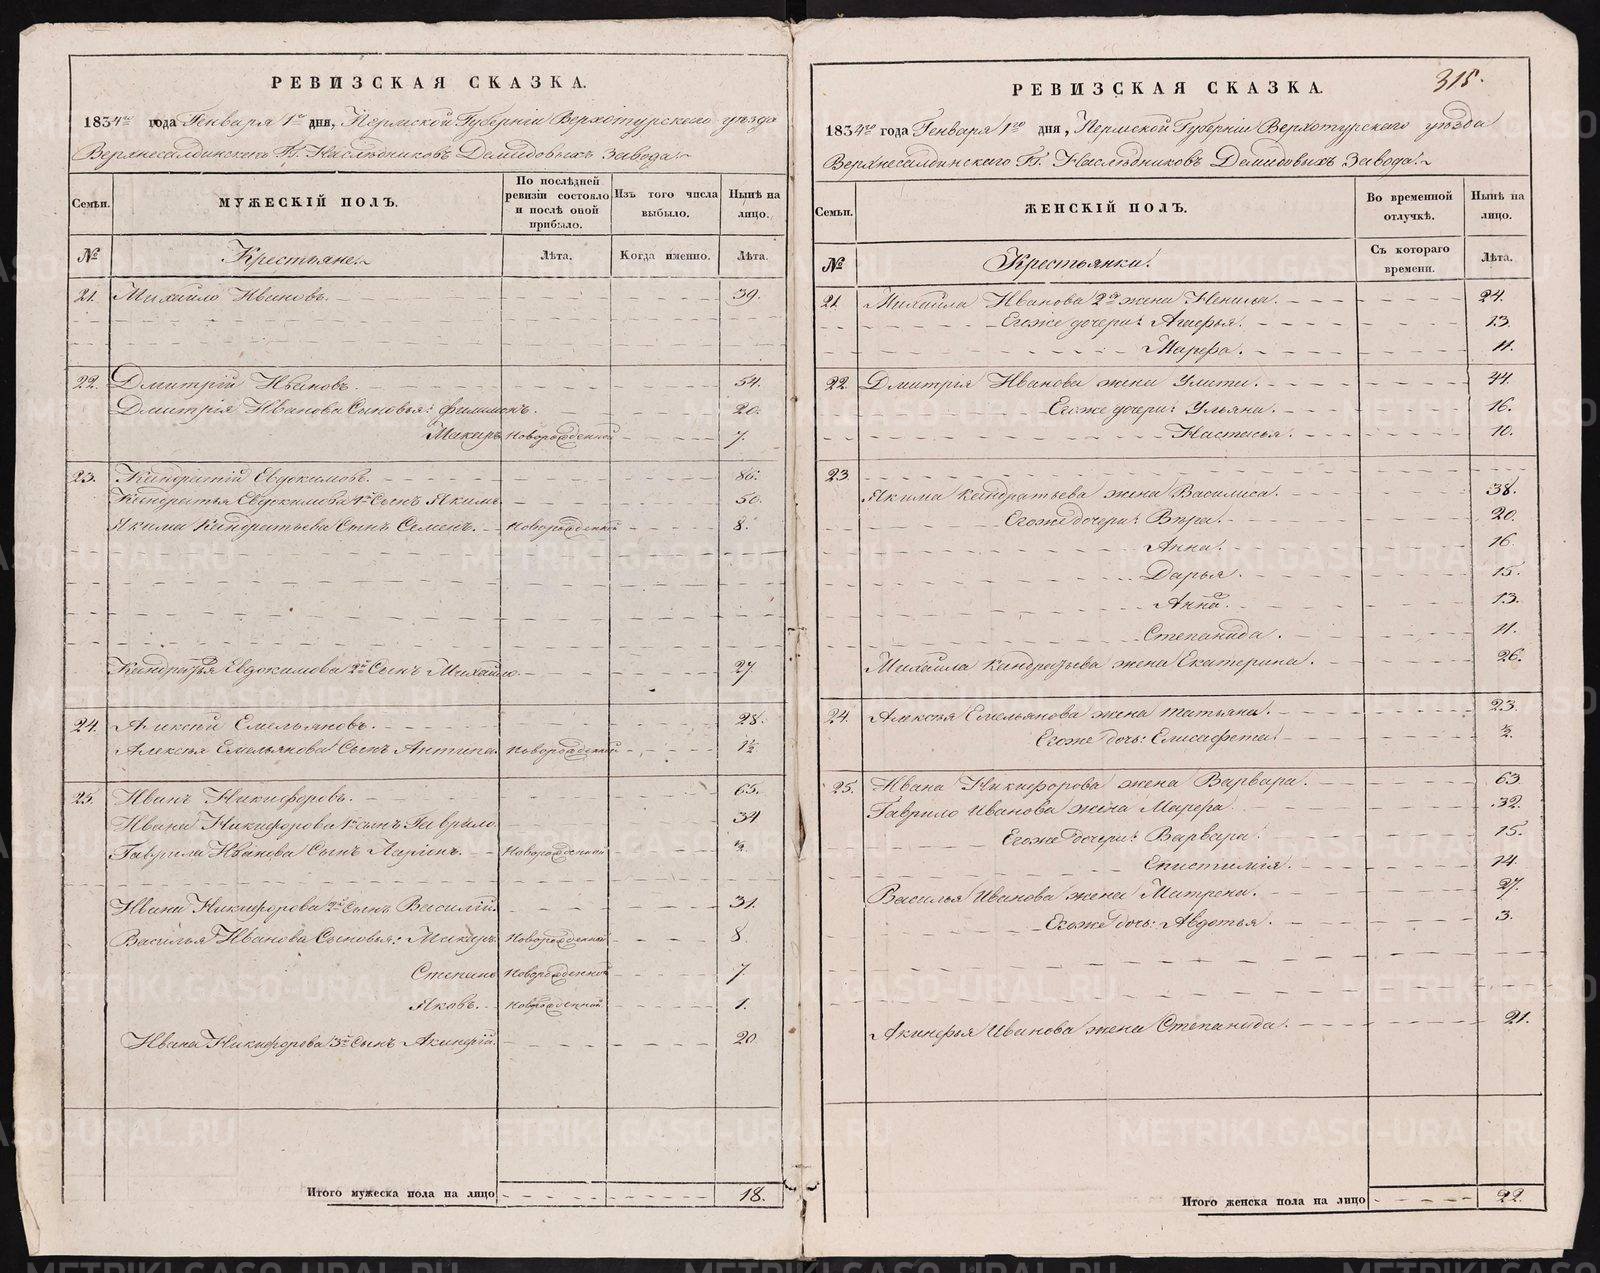 РЕВИЗСКАЯ СКАЗКА.
1834го года Генваря 1го дня, Пермской Губернiи Верхотурского уѣзда
Верхнесалдинского Гг. Наслѣдниковъ Демидовыхъ Завода.
Семьи.
МУЖЕСКIЙ ПОЛЪ.
По послѣдней ревизiи состояло и послѣ оной прибыло.
Изъ того числа выбыло.
Нынѣ на лицо.
№
Крестьяне.
Лѣта.
Когда именно.
Лѣта.
21. Михайло Ивановъ. 39.
22. Дмитрiй Ивановъ. 54.
Дмитрiя Иванова Сыновья: Филимонъ. 20.
Макаръ Новорожденной 7.
23. Кандратiй Евдокимовъ. 86.
Кандратья Евдокимова 1й Сынъ Якимъ. 50.
Якима Кандратьева Сынъ Семенъ. Новорожденной 8.
Кандратья Евдокимова 2й Сынъ Михайло. 27
24. Алексѣй Емельяновъ. 28.
Алексѣя Емельянова Сынъ Антипа. Новорожденной 1½
25. Иванъ Никифоровъ. 65.
Ивана Никифорова 1й сынъ Гаврило. 34
Гаврила Иванова Сынъ Ларiонъ. Новорожденной
Ивана Никифорова 2й Сынъ Василiй. 31.
Василья Иванова Сыновья: Макаръ. Новорожденной 8.
Степанъ Новорожденной 7
Яковъ. Новорожденной 1.
Ивана Никифорова 3й Сынъ Акинфiй. 20
Итого мужеска пола на лицо 18.
315.
РЕВИЗСКАЯ СКАЗКА.
1834го года Генваря 1го дня, Пермской Губернiи Верхотурского уѣзда
Верхнесалдинского Гг. Наслѣдниковъ Демидовыхъ Завода.
Семьи.
ЖЕНСКIЙ ПОЛЪ.
Во временной отлучкѣ.
Нынѣ на лицо.
№
Крестьянки.
Съ котораго времени.
Лѣта.
21. Михайла Иванова 2я жена Ненила. 24.
Егоже дочери: Агафья. 13.
Марфа. 11.
22. Дмитрiя Иванова жена Улита. 44.
Егоже дочери: Ульяна. 16.
Настасья. 10.
23.
Якима Кандратьева жена Василиса. 38.
Егоже дочери: Вѣра. 20.
Анна. 16.
Дарья. 15.
Анна. 13.
Степанида. 11.
Михайла Кандратьева жена Екатерина. 26.
24. Алексѣя Емельянова жена Татьяна. 23.
Егоже дочь: Елисафета. ½.
25. Ивана Никифорова жена Варвара. 63.
Гаврило Иванова жена Марфа. 32.
Егоже дочери: Варвара. 15.
Епистимiя. 14.
Василья Иванова жена Матрена. 27.
Егоже дочь: Авдотья. 3.
Акинфья Иванова жена Степанида. 21.
Итого женска пола на лицо 22.
METRIKI.GASO-URAL.RU